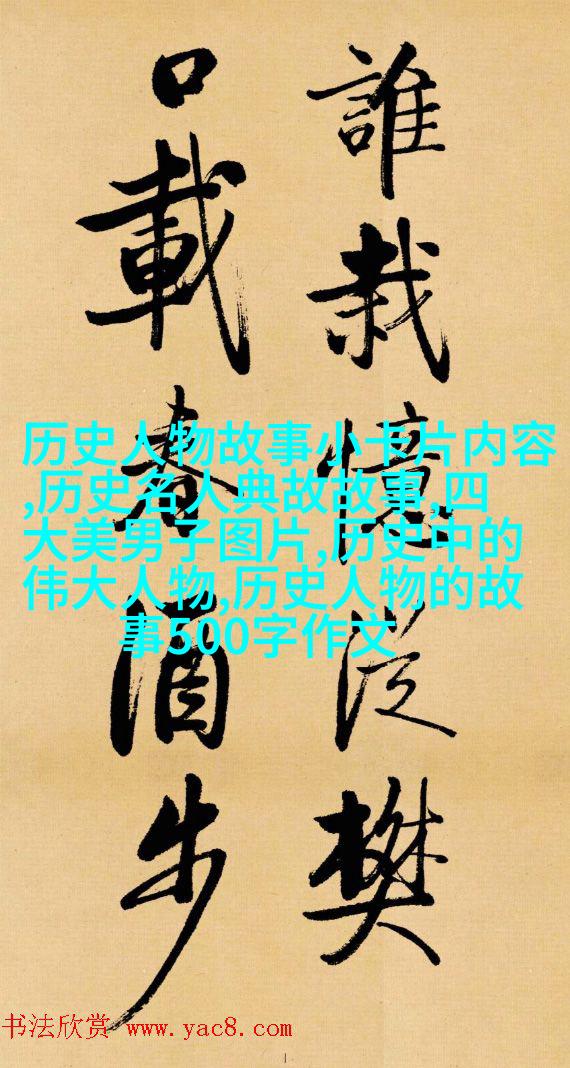 誰栽憶從樊
口載春酒步
历史人物故事小卡片内容
,历史名人典故故事,四
大美男子图片,历史中的
伟大人物,历史人物的故
事500字作文
书法欣赏 www.yac8.com